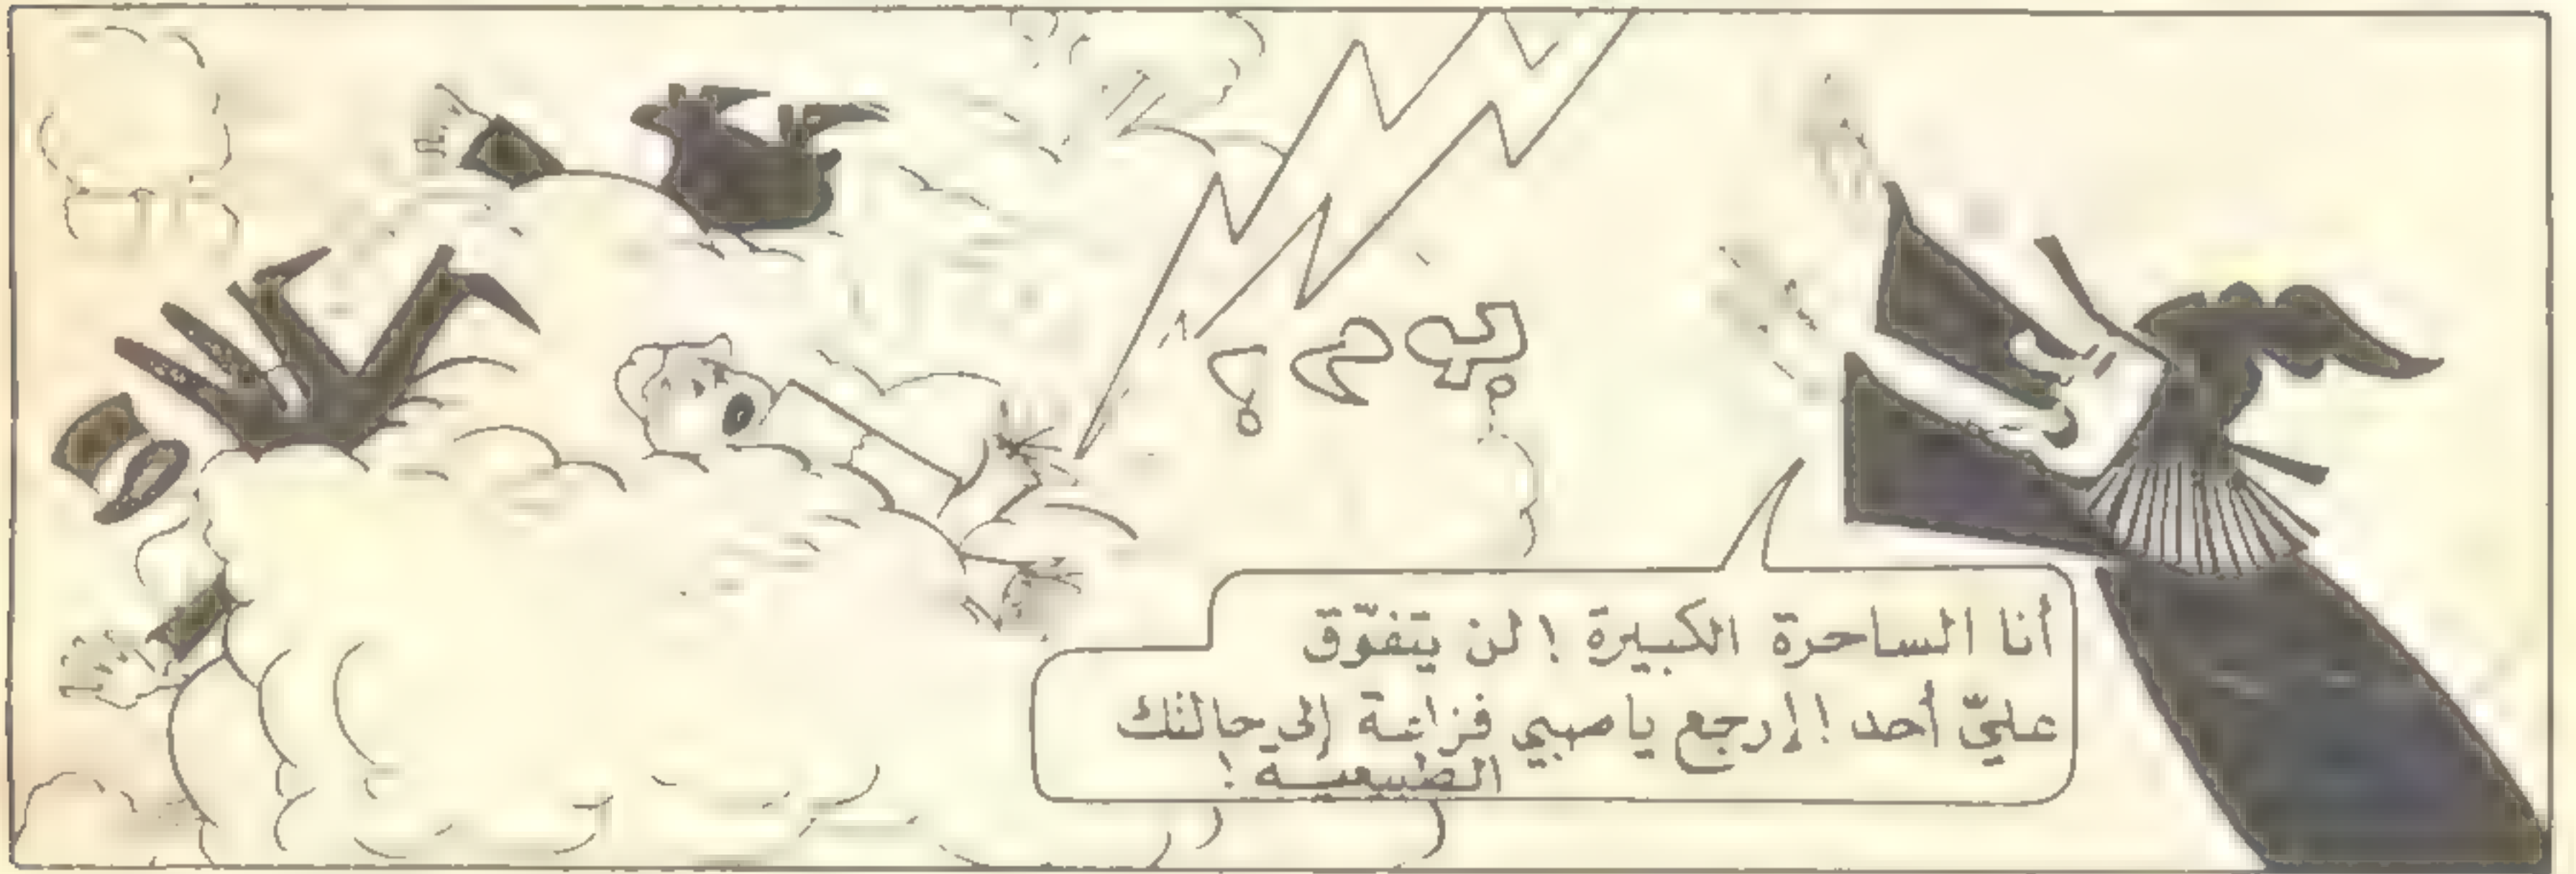 بوم؟
أنا الساحرة الكبيرة! لن يتفوّق
عليّ أحد! إرجع يا صبي فزاعة إلى حالتك
الطبيعية!